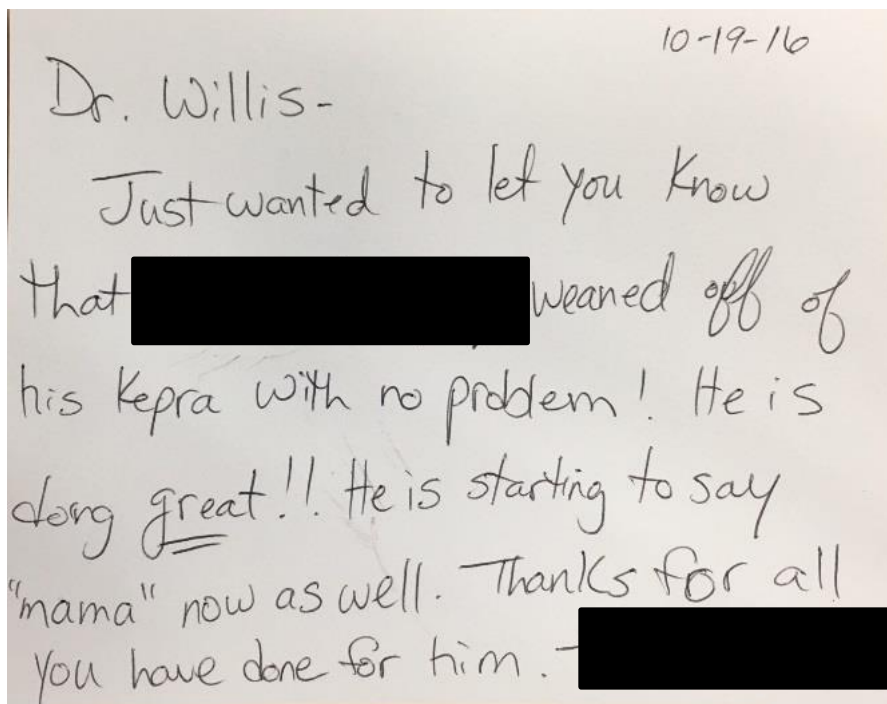 10-19-16
Dr. Willis-
Just wanted to let you know
that weaned off of
his Kepra with no problem! He is
doing great!! He is starting to say
"mama" now as well. Thanks for all
you have done for him. -